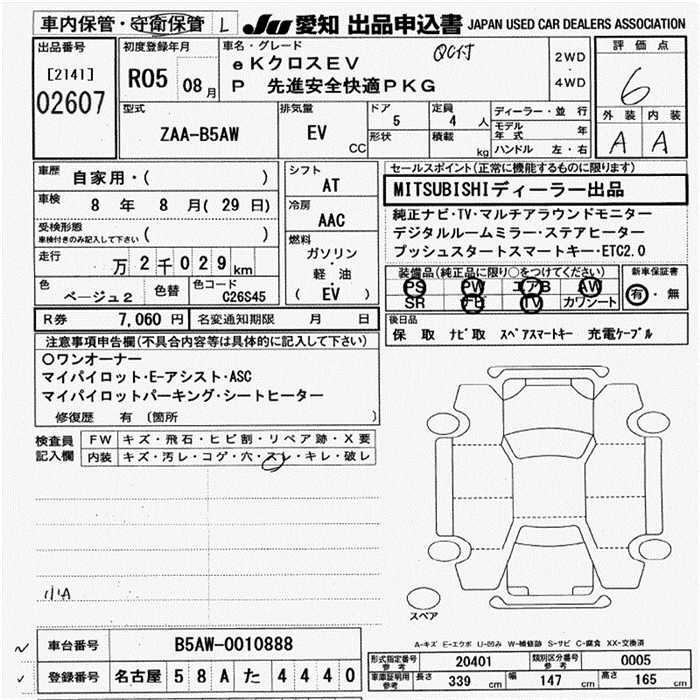 車内保管・守衛保管 L
JU 愛知 出品申込書 JAPAN USED CAR DEALERS ASSOCIATION
出品番号
[2141]
02607
初度登録年月
R05 08月
車名・グレード
eKクロスEV
P 先進安全快適PKG
2WD
・
4WD
評価点
6
外装 内装
A A
型式
ZAA-B5AW
排気量
EV
CC
ドア
5
定員
4 人
形状
積載
kg
ディーラー・並行
モデル年式 年
ハンドル 左・右
車歴
自家用・( )
車検
8 年 8 月( 29 日)
受検形態
車検付きのみ記入して下さい ( )
走行
万2千029km
色
ベージュ2
色替
色コード
C26S45
シフト
AT
冷房
AAC
燃料
ガソリン
・
軽・油
( EV )
セールスポイント(正常に機能するものに限ります)
MITSUBISHIディーラー出品
純正ナビ・TV・マルチアラウンドモニター
デジタルルームミラー・ステアヒーター
プッシュスタートスマートキー・ETC2.0
装備品(純正品に限り○をつけてください)
PS PW エアB AW
SR ナビ TV カワシート
新車保証書
有・無
R券 7,060 円
名変通知期限 月 日
後日品
保 取 ナビ取 スペアスマートキー 充電ケーブル
注意事項申告欄(不具合内容等は具体的に記入して下さい)
○ワンオーナー
マイパイロット・E-アシスト・ASC
マイパイロットパーキング・シートヒーター
修復歴 有 〔箇所 〕
検査員記入欄
FW キズ・飛石・ヒビ割・リペア跡・X要
内装 キズ・汚レ・コゲ・穴・スレ・キレ・破レ
小A
スペア
A-キズ E-エクボ U-凹み W-補修跡 S-サビ C-腐食 XX-交換済
車台番号 B5AW-0010888
登録番号 名古屋 58A た 4440
形式指定番号参考 20401 類別区分番号参考 0005
車庫証明用参考 長さ 339 cm 幅 147 cm 高さ 165 cm